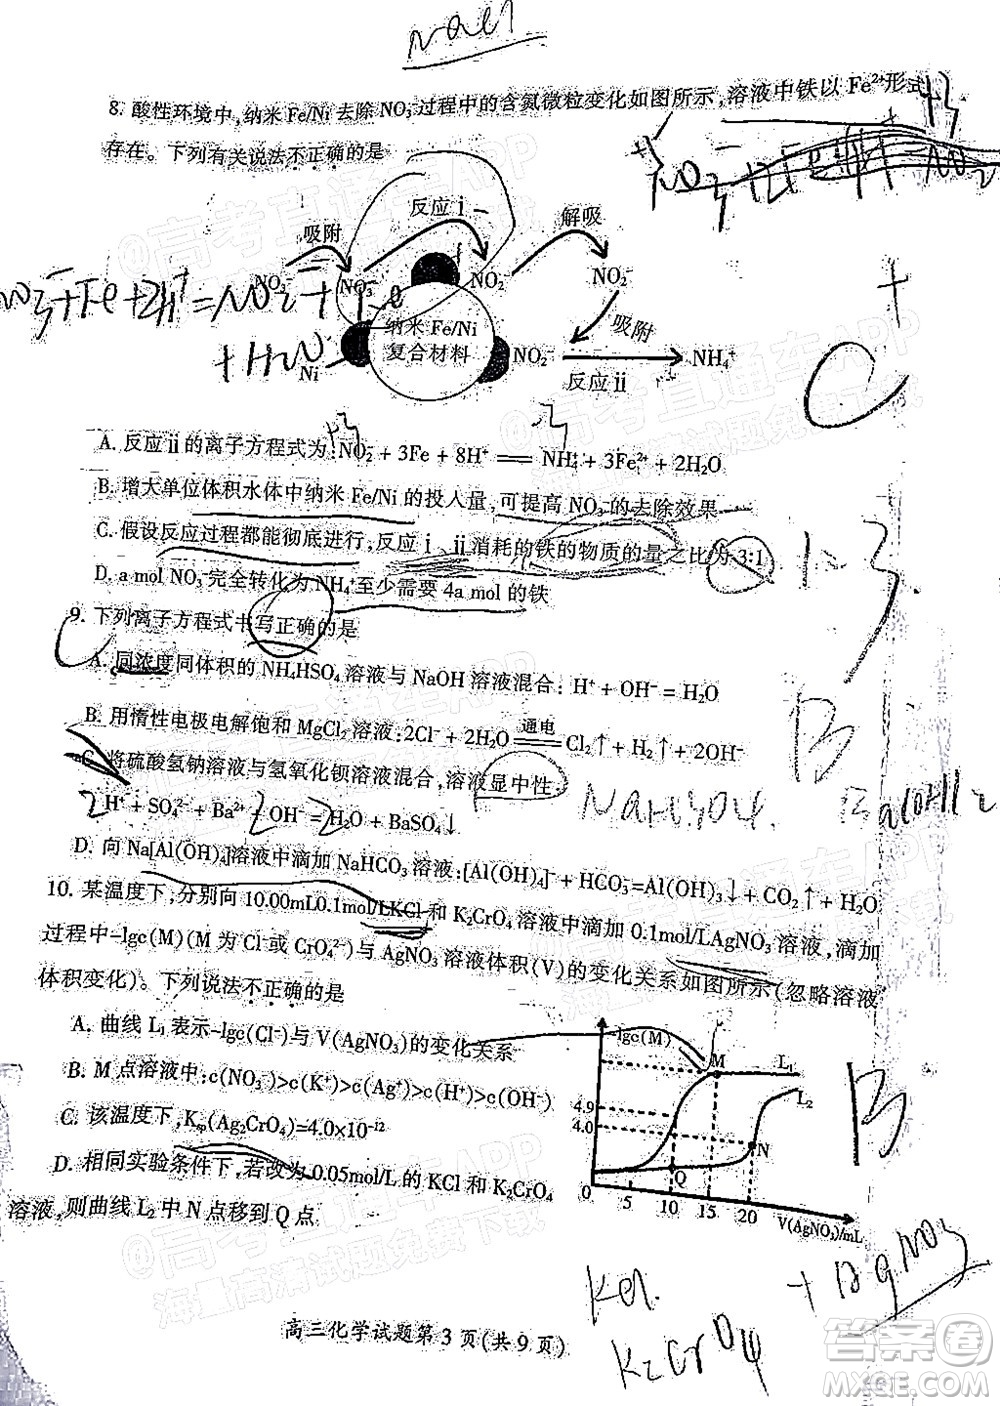 NaCl
8. 酸性环境中,纳米 Fe/Ni 去除 NO₃⁻过程中的含氮微粒变化如图所示,溶液中铁以 Fe²⁺形式
存在。下列有关说法不正确的是
吸附
反应 i
解吸
NO₃⁻
NO₃⁻
NO₂⁻
NO₂⁻
吸附
纳米 Fe/Ni
复合材料
Ni
NO₂⁻
反应 ii
NH₄⁺
C
A. 反应 ii 的离子方程式为:NO₂⁻ + 3Fe + 8H⁺ = NH₄⁺ + 3Fe²⁺ + 2H₂O
B. 增大单位体积水体中纳米 Fe/Ni 的投入量,可提高 NO₃⁻的去除效果
C. 假设反应过程都能彻底进行,反应 i、ii 消耗的铁的物质的量之比为 3:1
1:3.
D. a mol NO₃⁻完全转化为 NH₄⁺至少需要 4a mol 的铁
9. 下列离子方程式书写正确的是
A. 同浓度同体积的 NH₄HSO₄ 溶液与 NaOH 溶液混合: H⁺ + OH⁻ = H₂O
B. 用惰性电极电解饱和 MgCl₂ 溶液:2Cl⁻ + 2H₂O 通电 Cl₂↑ + H₂↑ + 2OH⁻
B
C. 将硫酸氢钠溶液与氢氧化钡溶液混合,溶液显中性:
H⁺ + SO₄²⁻ + Ba²⁺ + OH⁻ = H₂O + BaSO₄↓
NaHSO₄. Ba(OH)₂
D. 向 Na[Al(OH)₄]溶液中滴加 NaHCO₃ 溶液:[Al(OH)₄]⁻ + HCO₃⁻=Al(OH)₃↓ + CO₂↑ + H₂O
10. 某温度下,分别向 10.00mL0.1mol/LKCl 和 K₂CrO₄ 溶液中滴加 0.1mol/LAgNO₃ 溶液,滴加
过程中-lgc(M)(M 为 Cl⁻或 CrO₄²⁻)与 AgNO₃ 溶液体积(V)的变化关系如图所示(忽略溶液
体积变化)。下列说法不正确的是
A. 曲线 L₁ 表示-lgc(Cl⁻)与 V(AgNO₃)的变化关系
B. M 点溶液中:c(NO₃⁻)>c(K⁺)>c(Ag⁺)>c(H⁺)>c(OH⁻)
B
C. 该温度下,Ksp(Ag₂CrO₄)=4.0×10⁻¹²
D. 相同实验条件下,若改为 0.05mol/L 的 KCl 和 K₂CrO₄
溶液,则曲线 L₂ 中 N 点移到 Q 点
-lgc(M)
M
L₁
L₂
4.9
4.0
N
Q
0 5 10 15 20 V(AgNO₃)/mL
KCl.
K₂CrO₄
+ AgNO₃
高三化学试题第 3 页(共 9 页)
答案圈
MXQE.COM